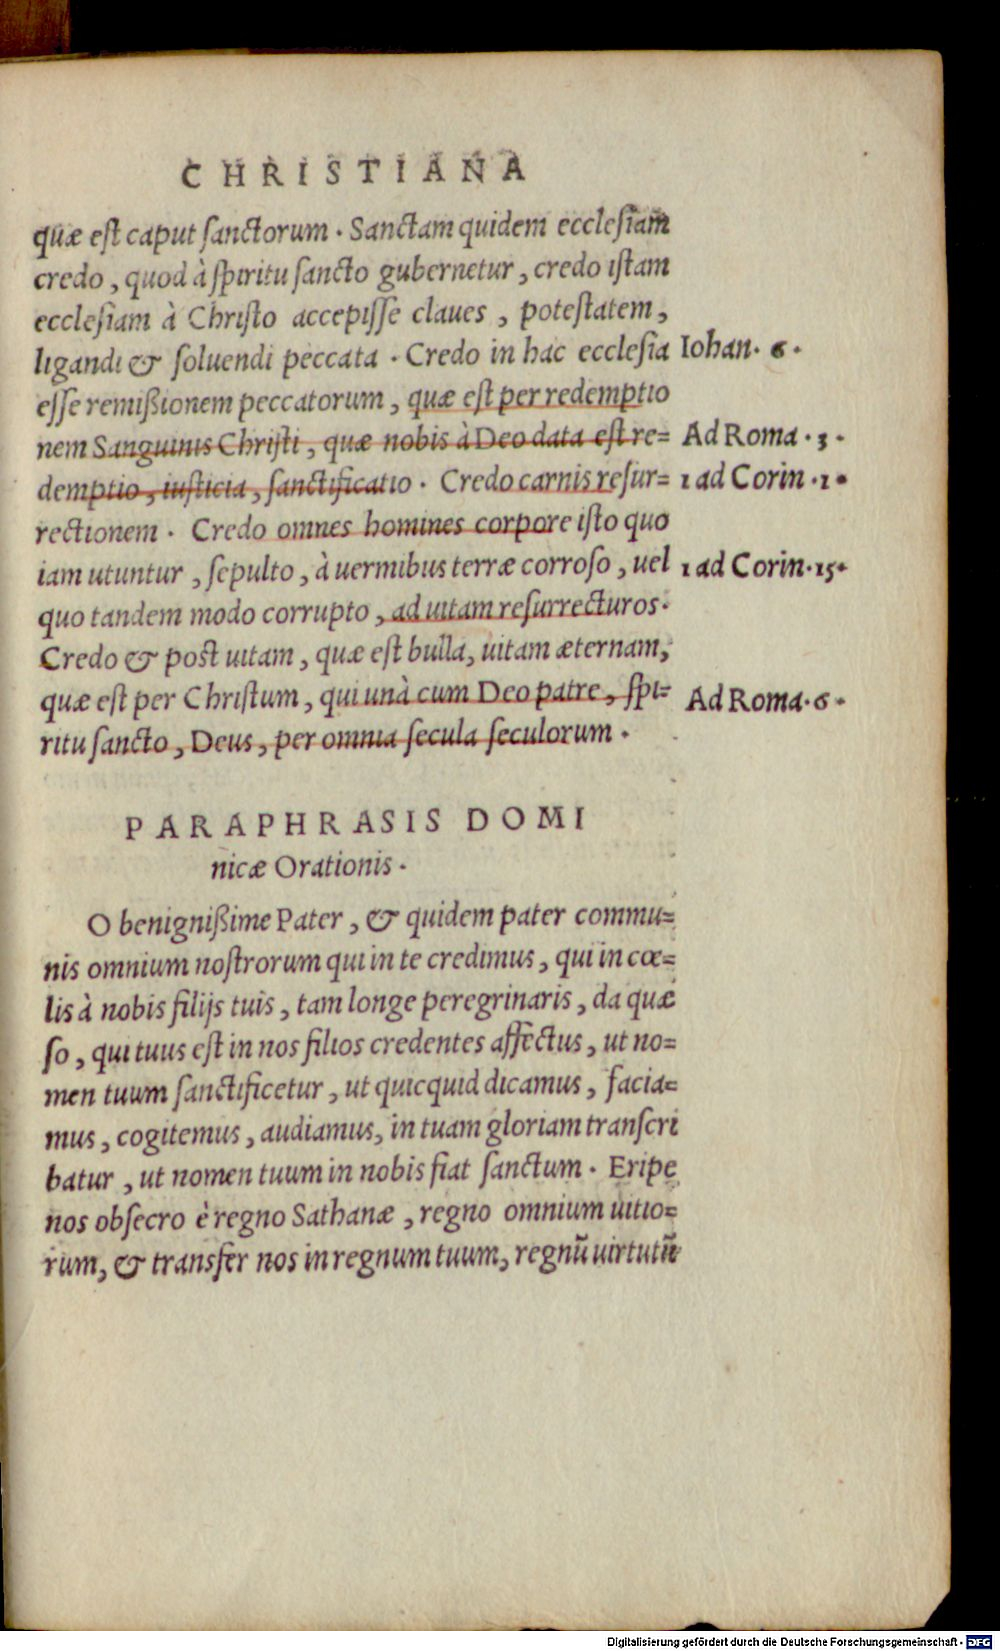 CHRISTIANA
quæ est caput ſanctorum. Sanctam quidem eccleſiam
credo, quod à ſpiritu ſancto gubernetur, credo iſtam
eccleſiam à Chriſto accepiſſe claues, poteſtatem,
ligandi & ſoluendi peccata. Credo in hac eccleſia Iohan. 6.
eſſe remißionem peccatorum, quæ eſt per redemptio
nem Sanguinis Chriſti, quæ nobis à Deo data eſt re= Ad Roma. 3.
demptio, iuſticia, ſanctificatio. Credo carnis reſur= 1 ad Corin. 1.
rectionem. Credo omnes homines corpore iſto quo
iam utuntur, ſepulto, à uermibus terræ corroſo, uel 1 ad Corin. 15.
quo tandem modo corrupto, ad uitam reſurrecturos.
Credo & poſt uitam, quæ eſt bulla, uitam æternam,
quæ est per Chriſtum, qui unà cum Deo patre, ſpi= Ad Roma. 6.
ritu ſancto, Deus, per omnia ſecula ſeculorum.
PARAPHRASIS DOMI
nicæ Orationis.
O benignißime Pater, & quidem pater commu=
nis omnium noſtrorum qui in te credimus, qui in cœ=
lis à nobis filijs tuis, tam longe peregrinaris, da quæ
ſo, qui tuus eſt in nos filios credentes affectus, ut no=
men tuum ſanctificetur, ut quicquid dicamus, facia=
mus, cogitemus, audiamus, in tuam gloriam tranſcri
batur, ut nomen tuum in nobis fiat ſanctum. Eripe
nos obſecro è regno Sathanæ, regno omnium uitio=
rum, & transfer nos in regnum tuum, regnũ uirtutũ
Digitalisierung gefördert durch die Deutsche Forschungsgemeinschaft - DFG